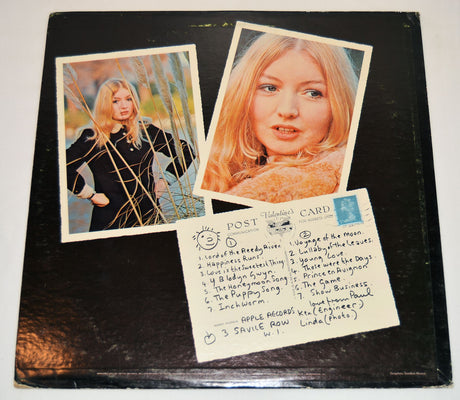 POST Valentine's CARD
②
①
1. Lord of the Reedy River
2. Happiness Runs
3. Love is the Sweetest Thing
4. Y Blodyn Gwyn.
5. The Honeymoon Song.
6. The Puppy Song.
7. Inchworm.
②
1. Voyage of the moon.
2. Lullaby of the Leaves.
3. Young Love.
4. Those were the Days.
5. Prince en Avignon
6. The Game.
7. Show Business
APPLE RECORDS
3 SAVILE ROW
W.1.
love from Paul
Ken (Engineer)
Linda (photo)